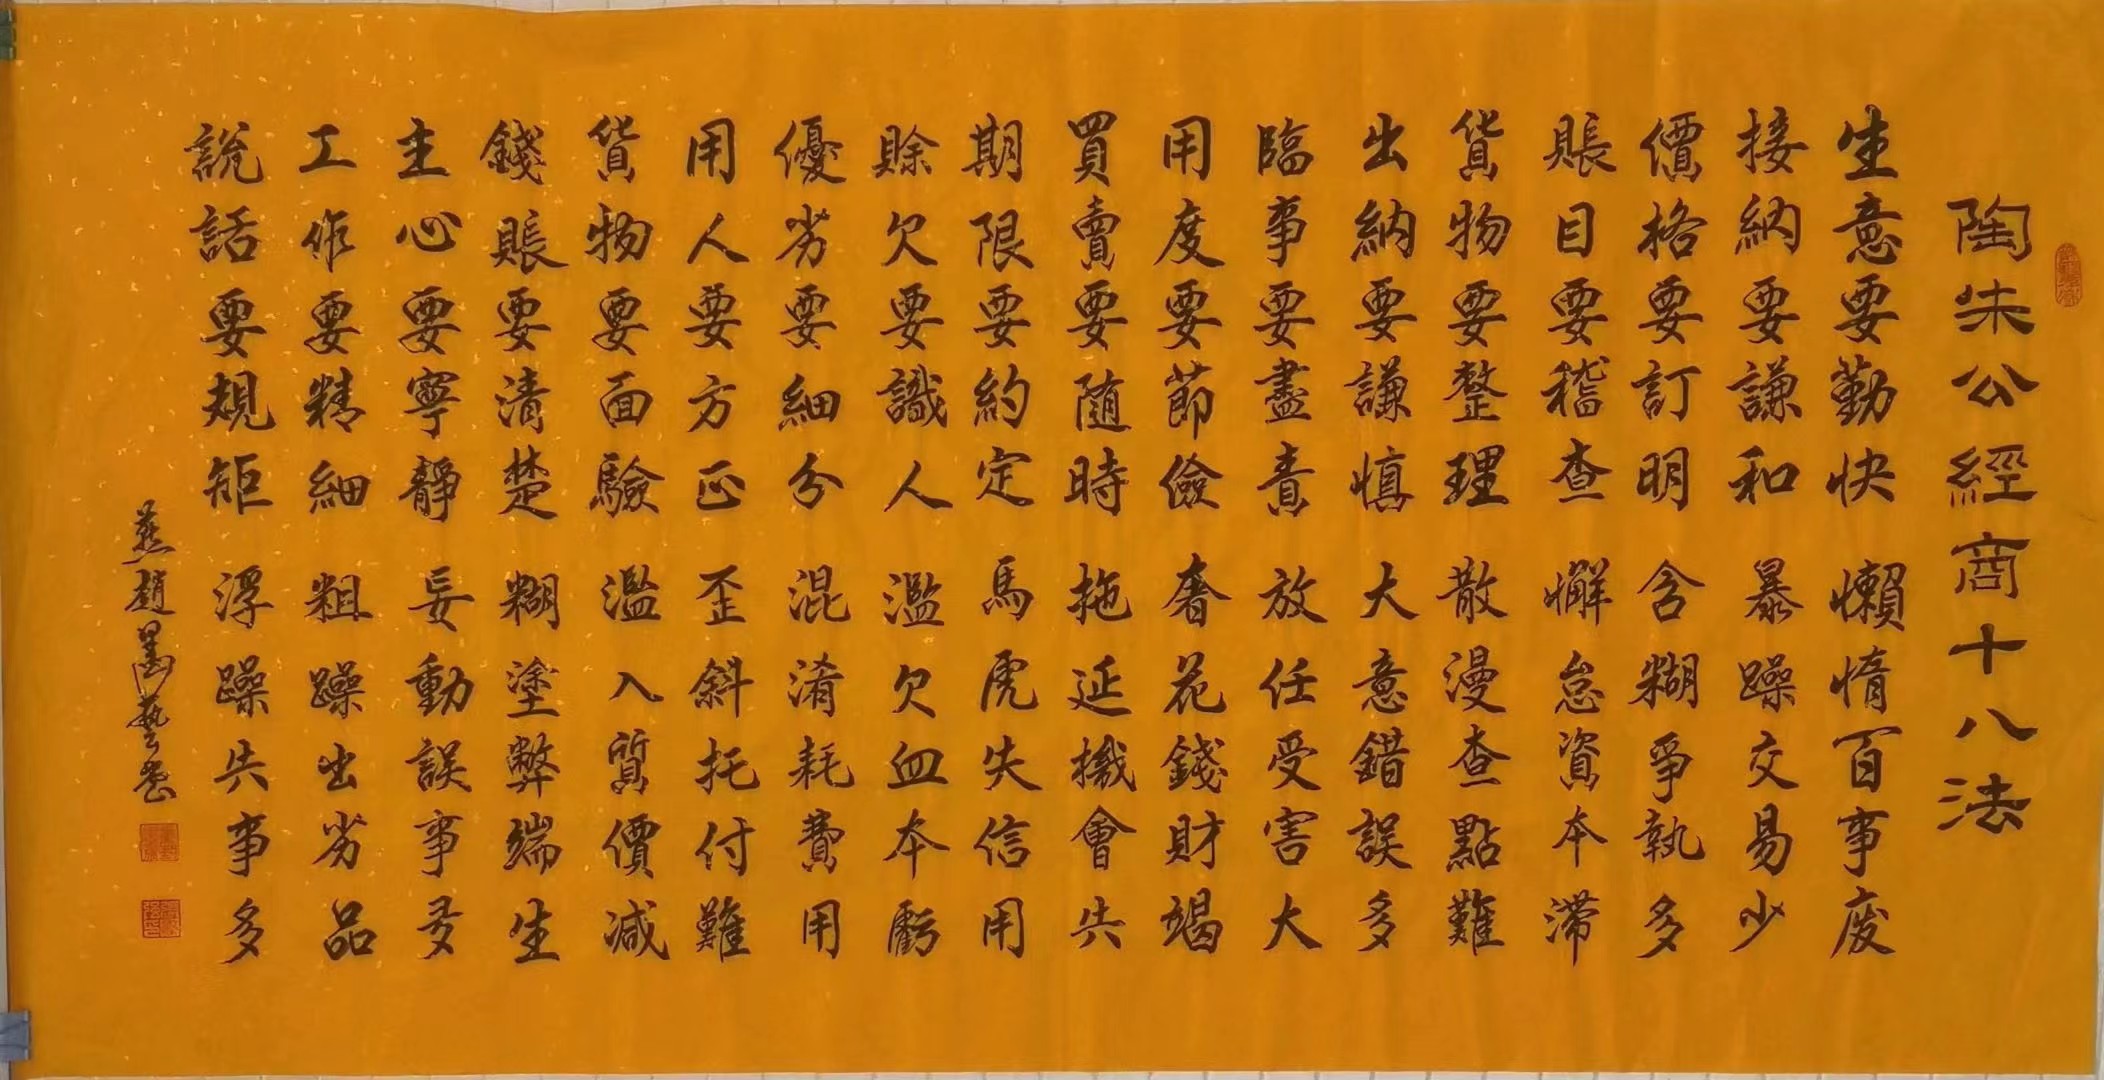 陶朱公經商十八法
生意要勤快 懶惰百事废
接納要謙和 暴躁交易少
價格要訂明 含糊爭執多
賬目要稽查 懈怠資本滯
貨物要整理 散漫查點難
出納要謙慎 大意錯誤多
臨事要盡責 放任受害大
用度要節儉 奢花錢財竭
買賣要隨時 拖延機會失
期限要約定 馬虎失信用
賒欠要識人 濫欠血本虧
優劣要細分 混淆耗費用
用人要方正 歪斜托付難
貨物要面驗 濫入質價減
錢賬要清楚 糊塗弊端生
主心要寧靜 妄動誤事多
工作要精細 粗躁出劣品
說話要規矩 浮躁失事多
燕趙墨藝書